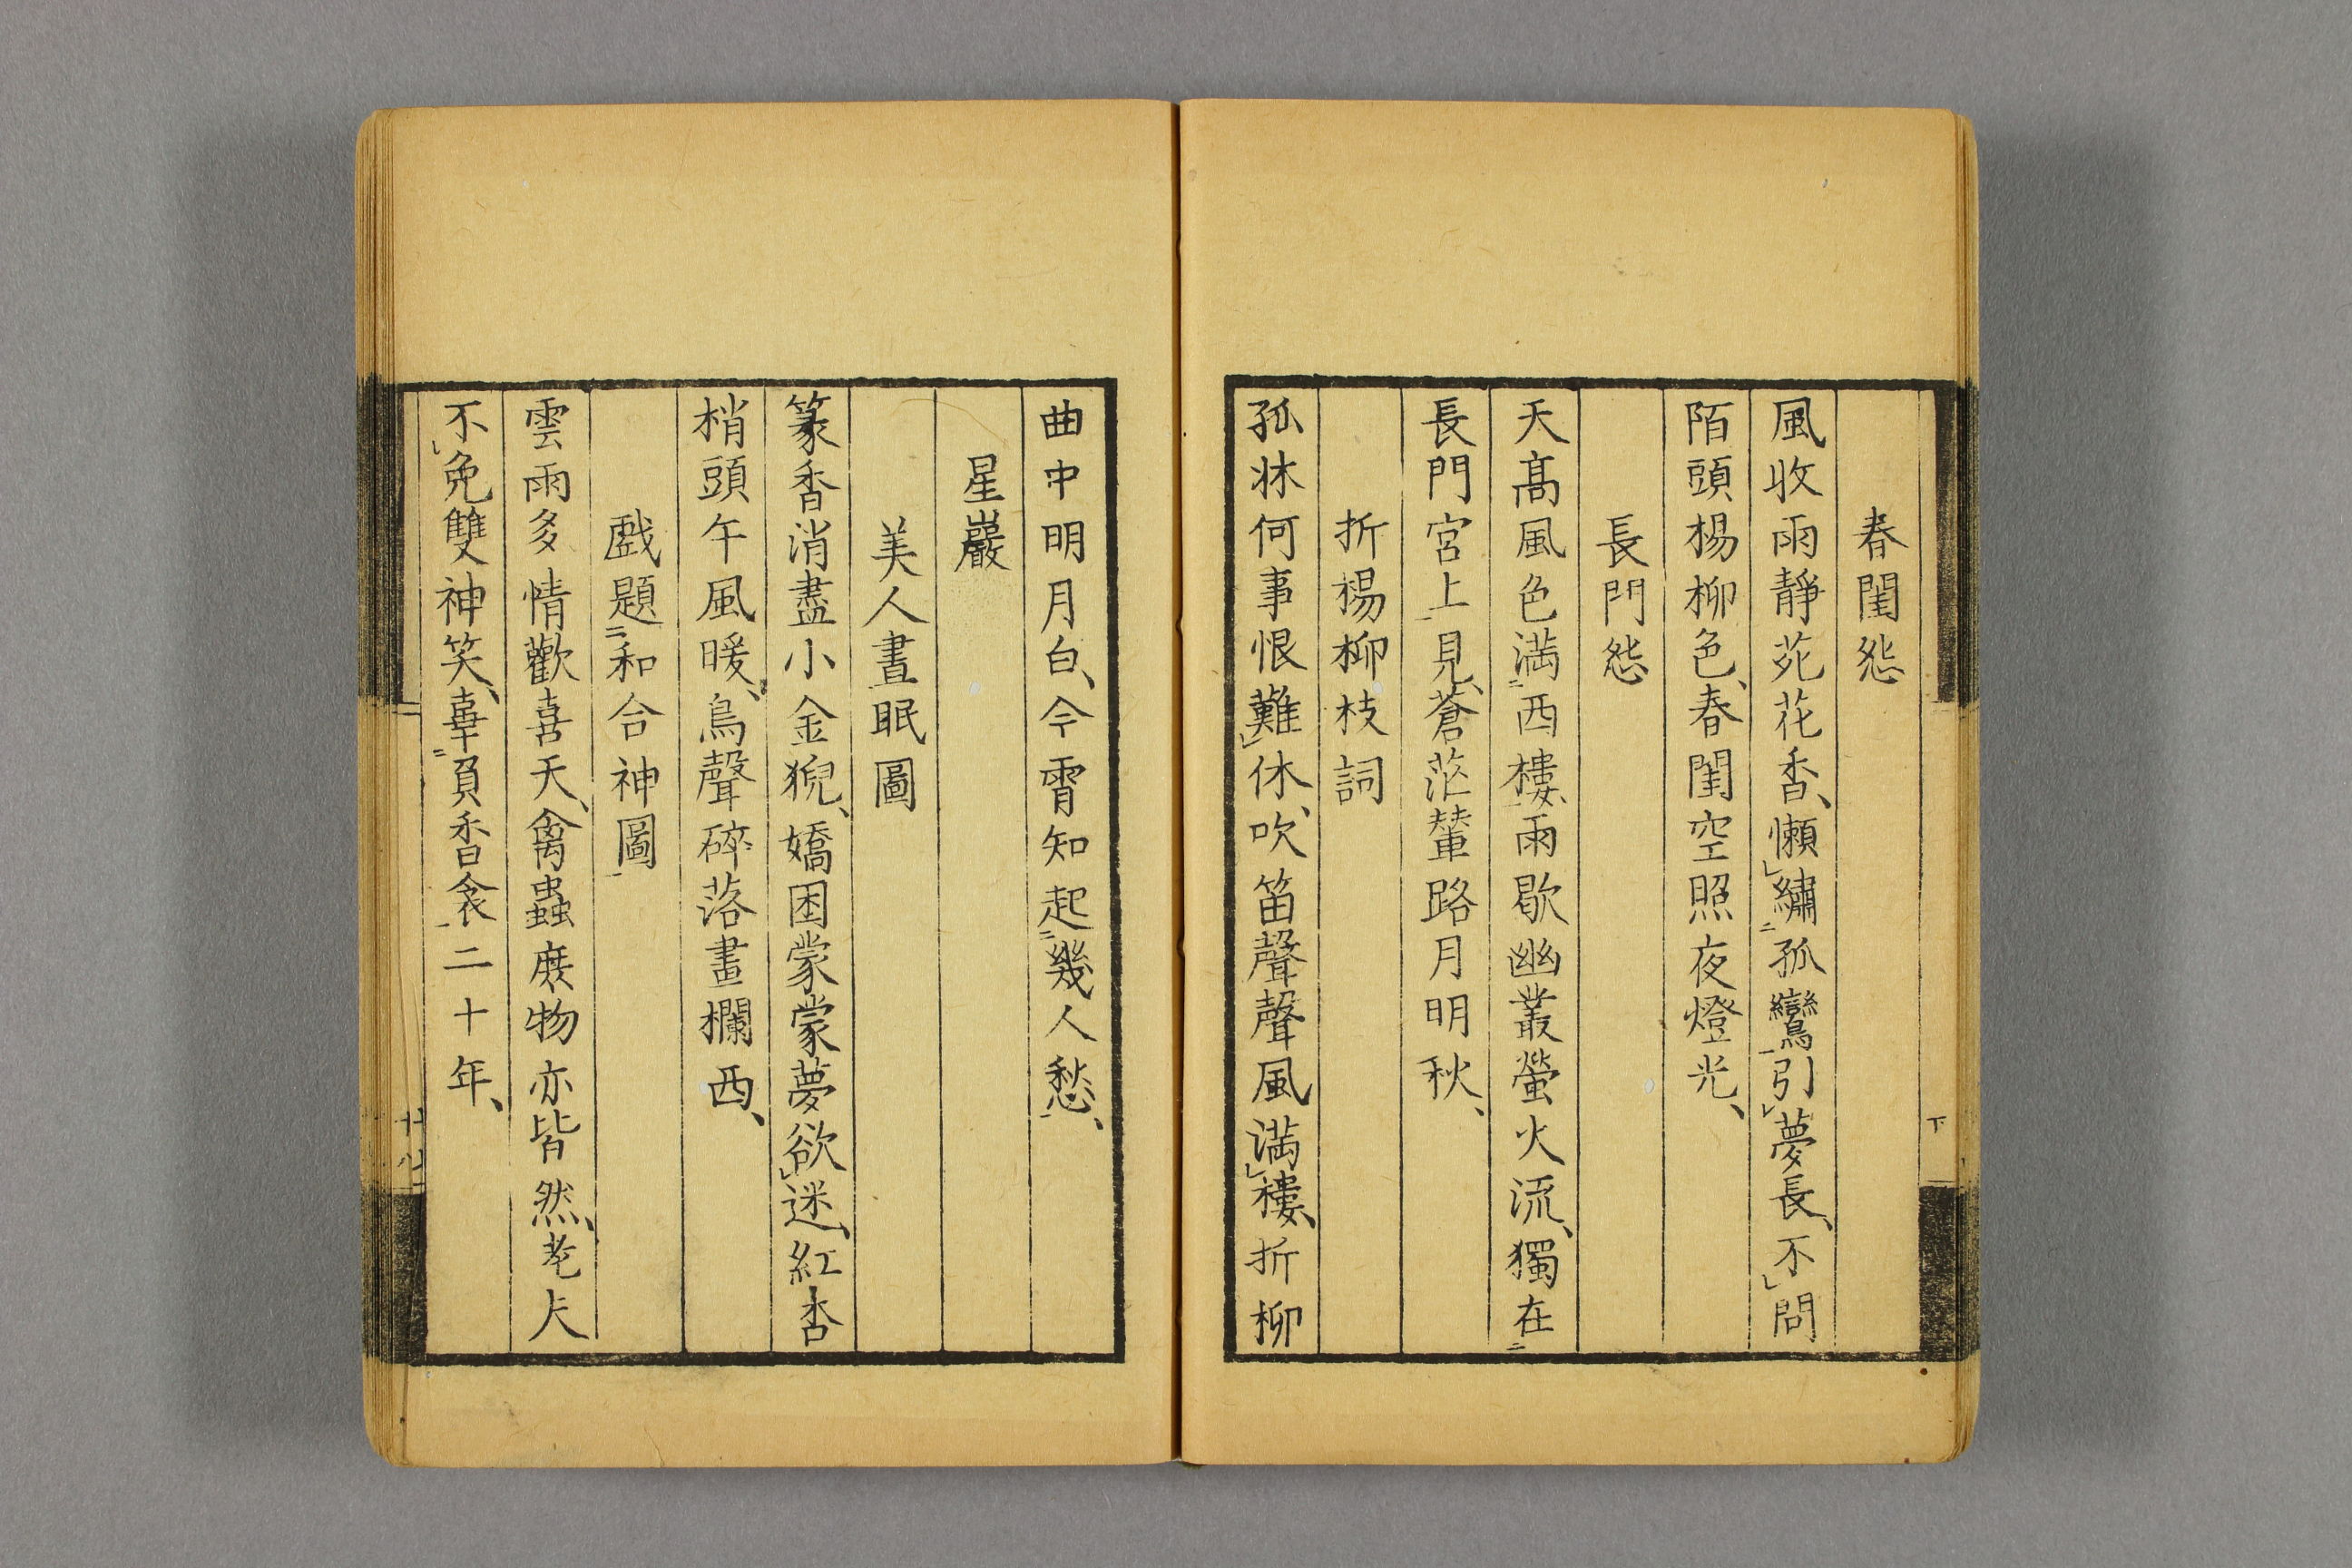 春閨怨
風收雨靜苑花香、懶繡孤鸞引夢長、不問
陌頭楊柳色、春閨空照夜燈光、
長門怨
天髙風色満西樓、雨歇幽叢螢火流、獨在
長門宮上見、蒼茫輦路月明秋、
折楊柳枝詞
孤牀何事恨難休、吹笛聲聲風満樓、折柳
下
曲中明月白、今霄知起幾人愁、
星巖
美人晝眠圖
篆香消盡小金猊、嬌困蒙蒙夢欲迷、紅杏
梢頭午風暖、鳥聲碎落畫欄西、
戲題和合神圖
雲雨多情歡喜天、禽蟲庶物亦皆然、老夫
不免雙神笑、辜負香衾二十年、
廿七